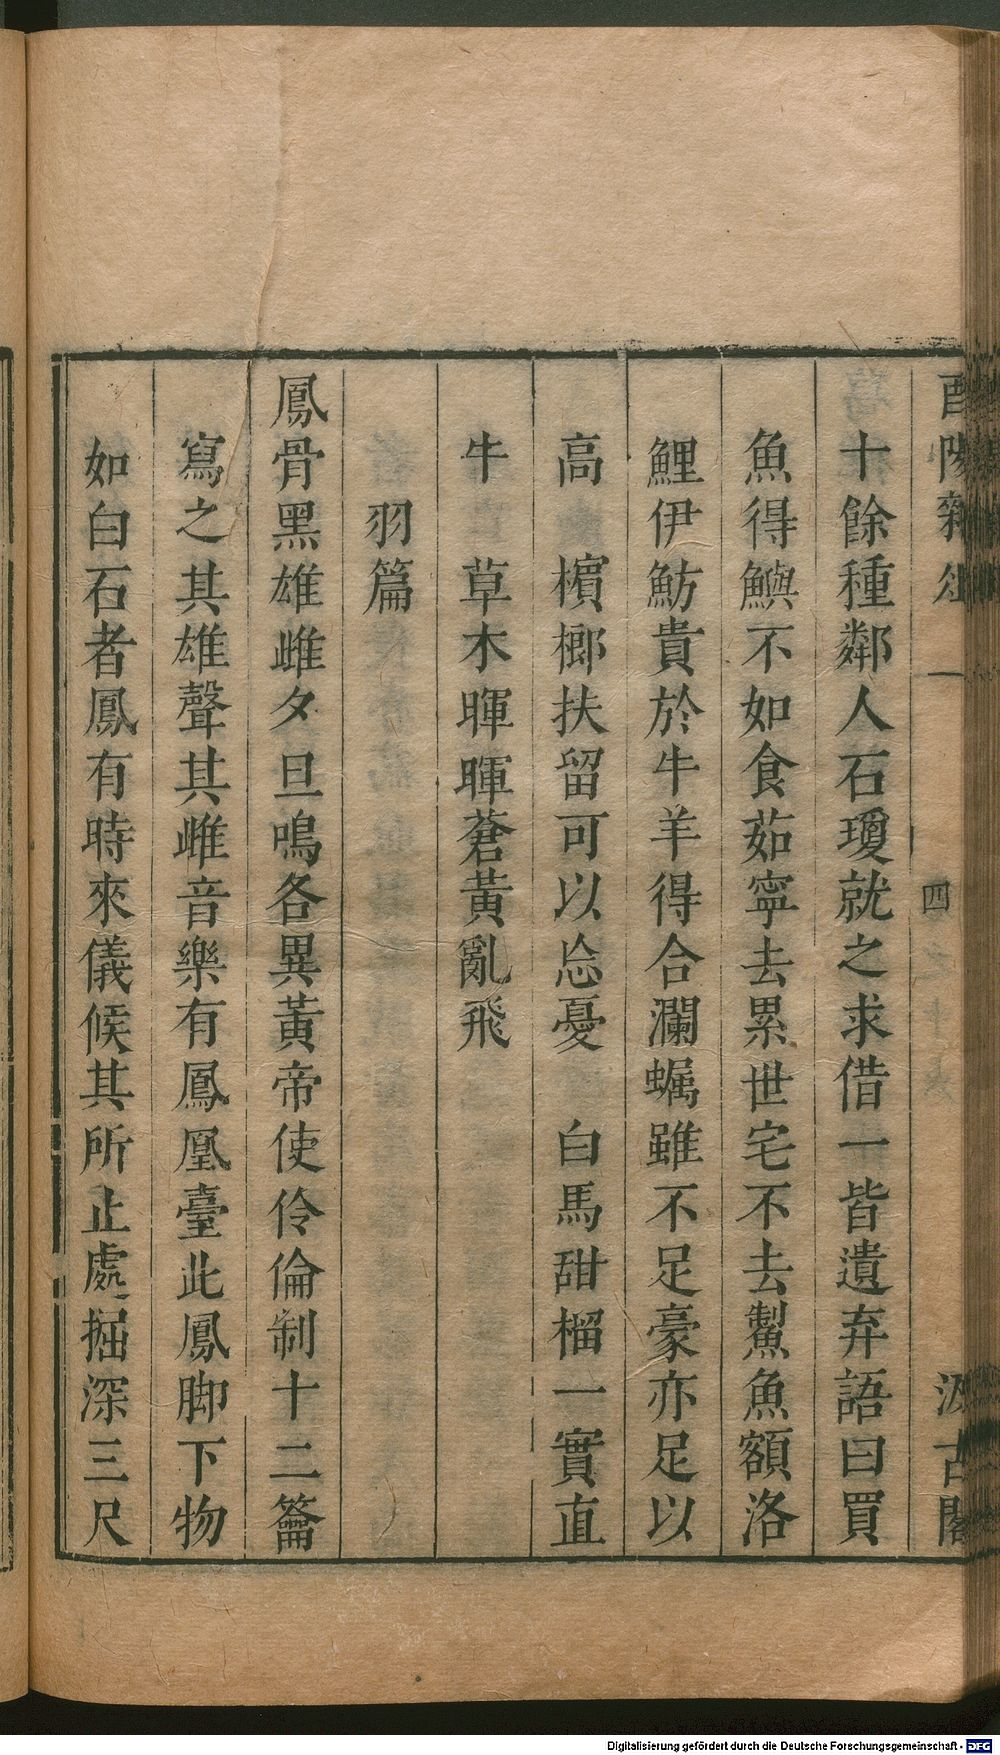 酉陽雜俎 一 四 汲古閣
十餘種鄰人石瓊就之求借一皆遺弃語曰買
魚得鱮不如食茹寧去累世宅不去鮆魚額洛
鯉伊魴貴於牛羊得合瀾蠣雖不足豪亦足以
高 檳榔扶留可以忘憂 白馬甜榴一實直
牛 草木暉暉蒼黃亂飛
羽篇
鳳骨黑雄雌夕旦鳴各異黃帝使伶倫制十二籥
寫之其雄聲其雌音樂有鳳凰臺此鳳脚下物
如白石者鳳有時來儀候其所止處掘深三尺
Digitalisierung gefördert durch die Deutsche Forschungsgemeinschaft - DFG